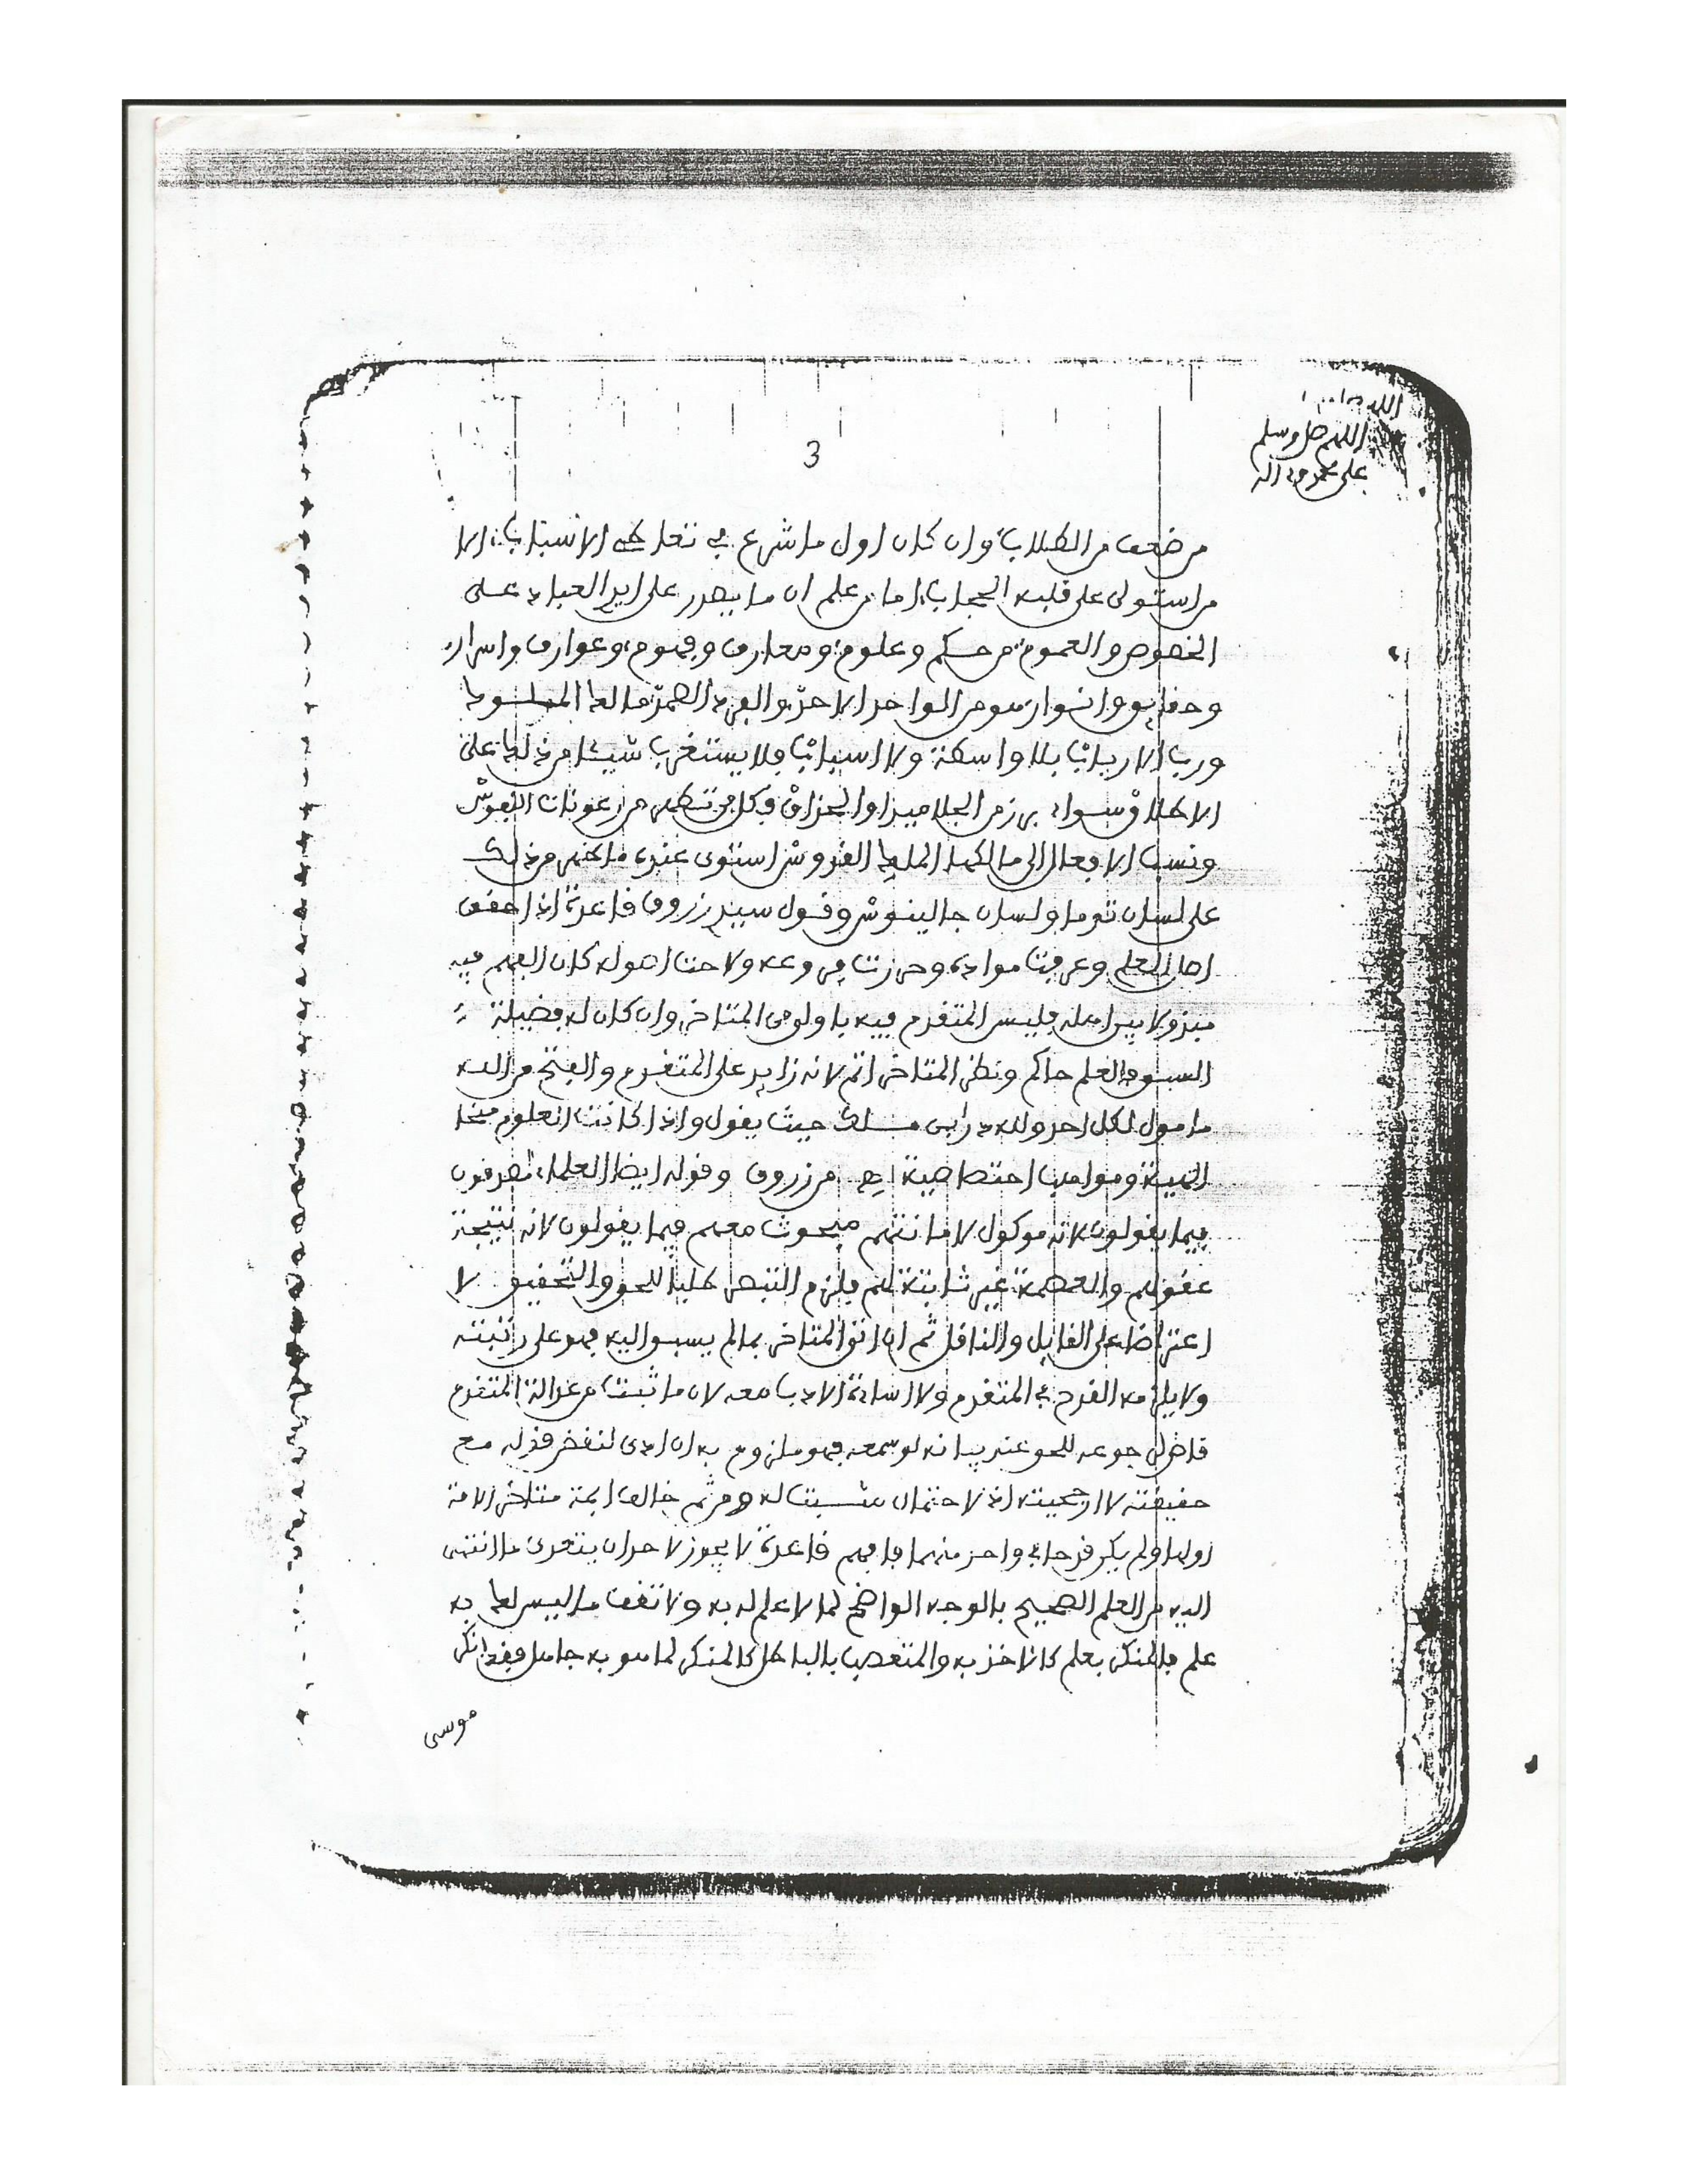 اللهم صل وسلم
على محمد وءاله
3
من ضعف من الطلاب وان كان اول ما شرع في تعاطي الاسباب الا
من استولى على قلبه الحجاب اما من علم ان ما يصدر على ايدي العباد على
الخصوص والعموم من حكم وعلوم ومعارف وفهوم وعوارف واسرار
وحقايق وانوار هو من الواحد الاحد والفرد الصمد مالك الملوك
ورب الارباب بلا واسطة ولا اسباب فلا يستغرب شيئا من ذلك على
الاطلاق سواء برز من الجلاميد او الحذاق فكل من تطهر من رعونات النفوس
ونسب الافعال الى مالكها الملك القدوس استوى عنده ما ظهر من ذلك
على لسان توما ولسان جالينوس وقول سيدي زروق قاعدة اذا حقق
اصل العلم وعرفت مواده وجرت فروعه ولاحت اصوله كان الفهم فيه
مبذولا بين اهله فليس المتقدم فيه باولى من المتاخر وان كان له فضيلة
السبق فالعلم حاكم ونظر المتاخر اتم لانه زايد على المتقدم والفتح من الله
مامول لكل احد ولله در ابن مالك حيث يقول واذا كانت العلوم منحا
الهية ومواهب اختصاصية اهـ من زروق وقوله ايضا العلماء مصدقون
فيما ينقلون لانه موكول لامانتهم مبحوث معهم فيما يقولون لانه نتيجة
عقولهم والعصمة غير ثابتة لهم فلزم التبصر طلبا للحق والتحقيق لا
اعتراضا على القايل والناقل ثم ان اتى المتاخر بما لم يسبق اليه فهو على رتبته
ولا يلزمه القدح في المتقدم ولا اساءة الادب معه لان ما ثبت من عدالة المتقدم
قاض برجوعه للحق عند بيانه لو سمعه فهو ملزوم به ان ادى لنقض قوله مع
حقيقته لا ارجحيته اذ الاحتمال مثبت له ومن ثم خالف ايمة متاخر الامة
اولها ولم يكن قدحا في واحد منهما فافهم قاعدة لا يجوز لاحد ان يتعدى ما انتهى
اليه من العلم الصحيح بالوجه الواضح لما لا علم له به ولا تقف ما ليس لك به
علم فالمنكر بعلم كالاخذ به والمتعصب بالباطل كالمنكر لما هو به جاهل فقد انكر
موسى